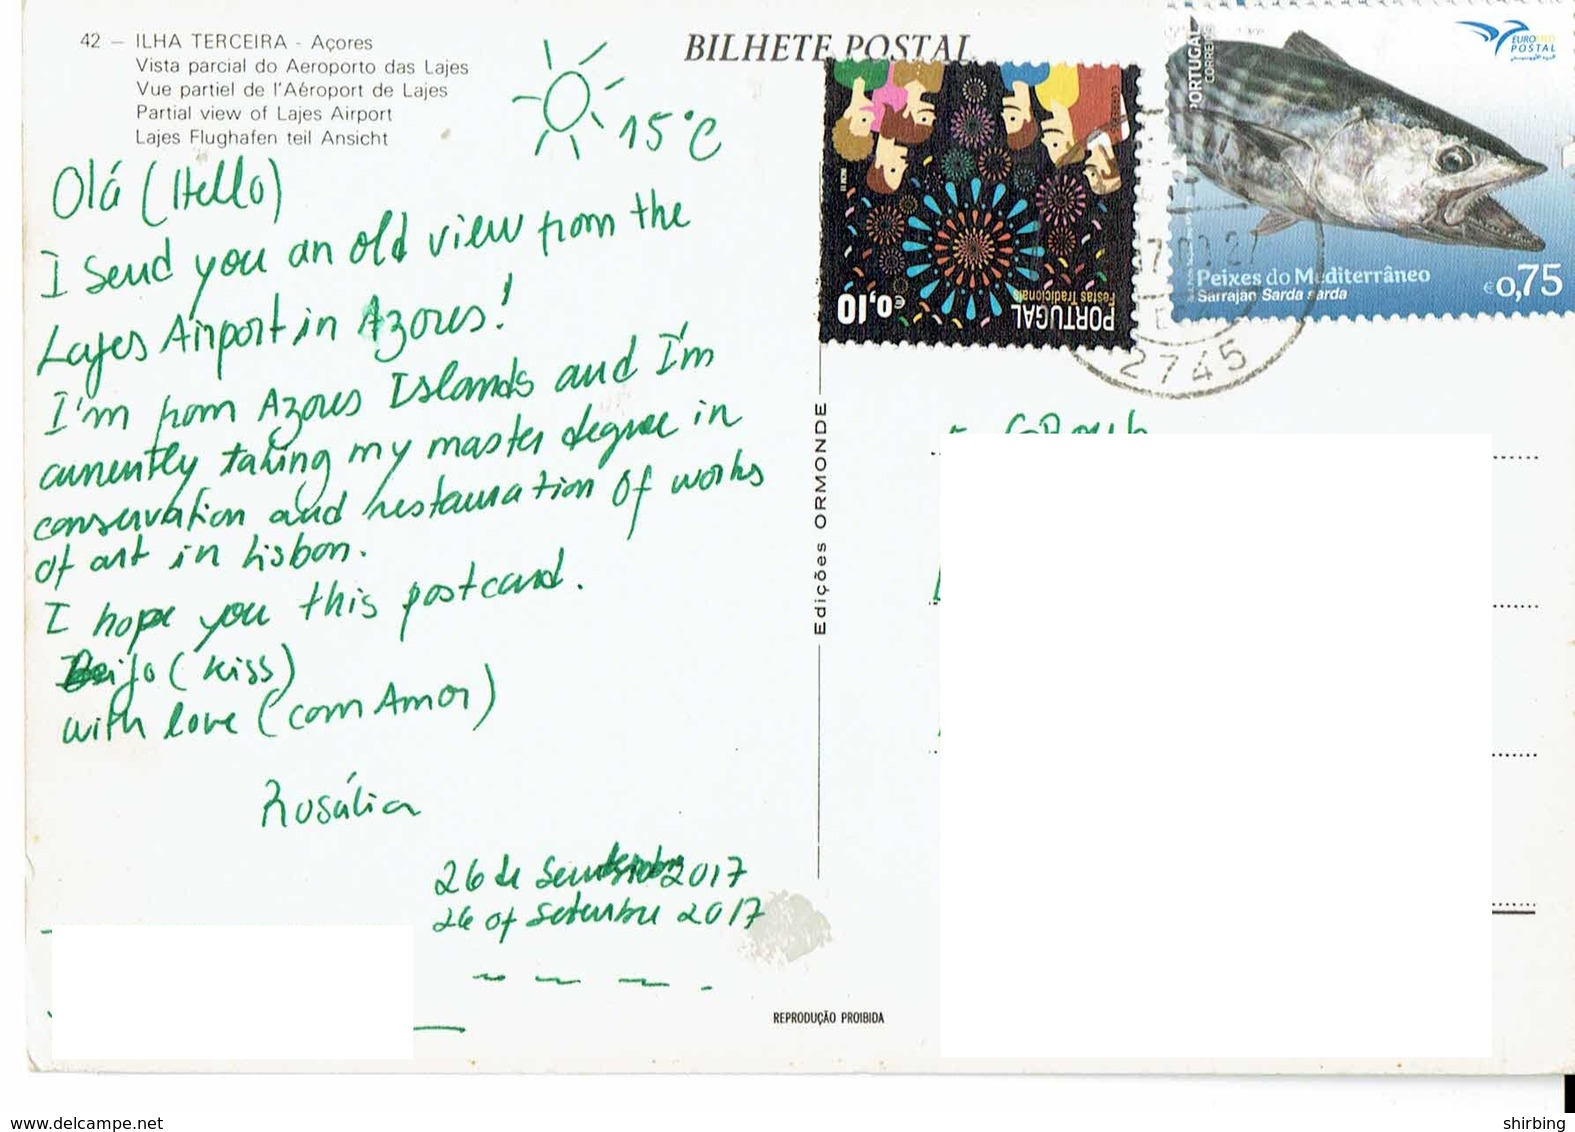 42 – ILHA TERCEIRA - Açores
Vista parcial do Aeroporto das Lajes
Vue partiel de l'Aéroport de Lajes
Partial view of Lajes Airport
Lajes Flughafen teil Ansicht
15°C
Olá (Hello)
I send you an old view from the
Lajes Airport in Azores!
I'm from Azores Islands and I'm
currently taking my master degree in
conservation and restauration of works
of art in Lisbon.
I hope you this postcard.
Beijo (kiss)
with love (com Amor)
Rosália
26 de 2017
26 of Setembre 2017
BILHETE POSTAL
PORTUGAL
Festas Tradicionais
€0,10
PORTUGAL
CORREIOS
EUROMED
POSTAL
Peixes do Mediterrâneo
Sarrajão Sarda sarda
€0,75
2745
Edições ORMONDE
REPRODUÇÃO PROIBIDA
www.delcampe.net
shirbing